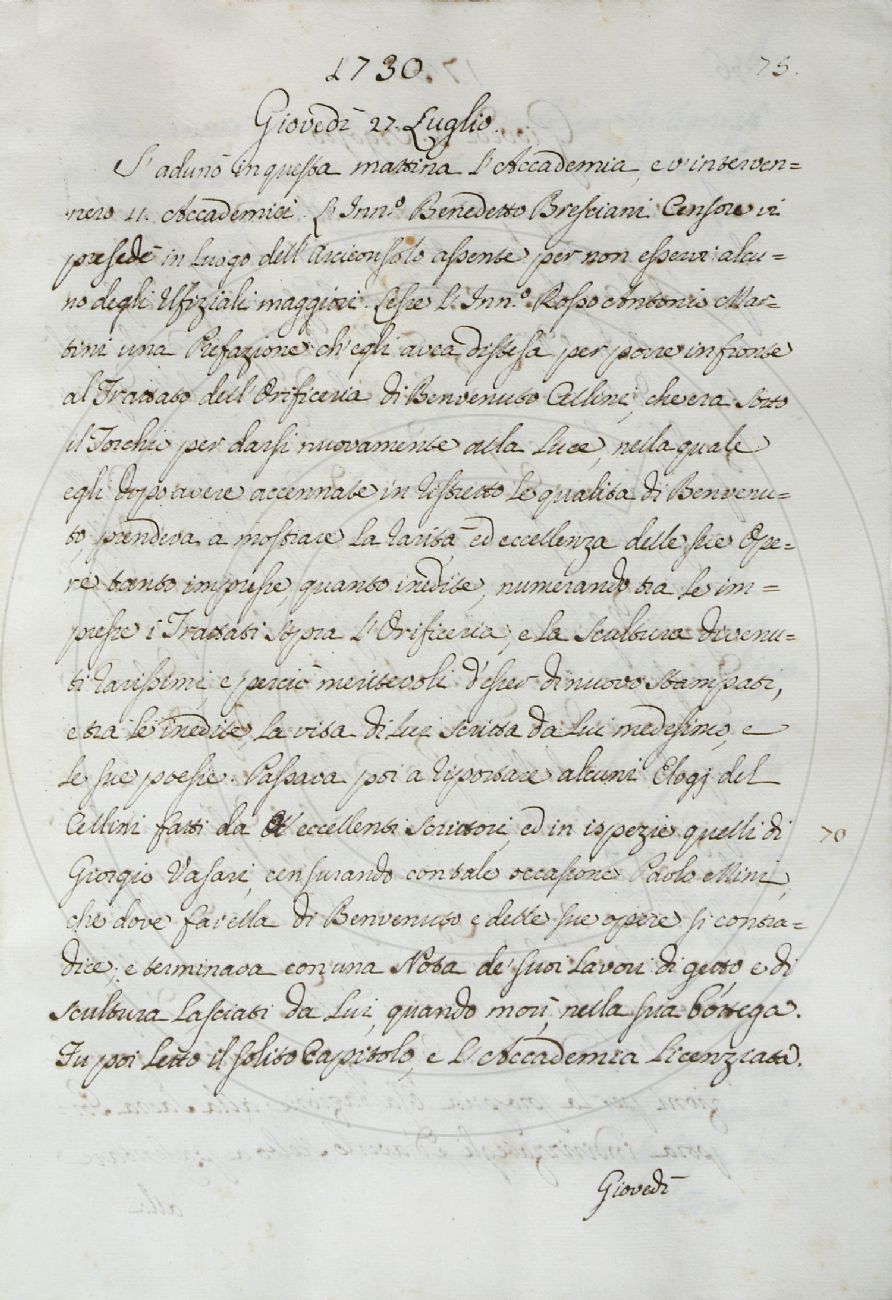 1730. 75.
Giovedì 27. Luglio.
S'adunò in questa mattina l'Accademia, e v'interven=
nero 11. Accademici. L'Inn.º Benedetto Bresciani Censore vi
presedè in luogo dell'Arciconsolo assente per non esservi alcu=
no degli Ufiziali maggiori. Lesse l'Inn.º Rosso Antonio Mar=
tini una Prefazione ch'egli avea distesa per porre in fronte
al Trattato dell'Orificeria di Benvenuto Cellini, che era sotto
il Torchio per darsi nuovamente alla luce, nella quale
egli dopo avere accennate in ristretto le qualità di Benvenu=
to, prendeva a mostrare la rarità ed eccellenza delle sue Ope=
re tanto impresse, quanto inedite, numerando tra le im=
presse i Trattati sopra l'Orificeria, e la Scultura divenu=
ti rarissimi, e perciò meritevoli d'esser di nuovo stampati,
e tra le inedite, la vita di lui scritta da lui medesimo, e
le sue poesie. Passava poi a riportare alcuni Elogj del
Cellini fatti da eccellenti scrittori, ed in ispezie quelli di
70
Giorgio Vasari, censurando con tale occasione Paolo Mini,
che dove favella di Benvenuto e delle sue opere si contra=
dice; e terminava con una Nota de' suoi lavori di getto e di
scultura lasciati da lui, quando morì, nella sua bottega.
Fu poi letto il solito Capitolo, e l'Accademia licenziata.
Giovedì